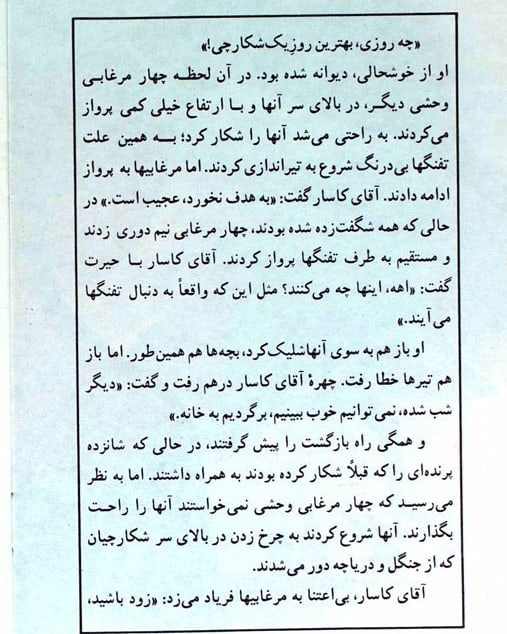 «چه روزی، بهترین روزِ یک شکارچی!»
او از خوشحالی، دیوانه شده بود. در آن لحظه چهار مرغابی
وحشی دیگر، در بالای سر آنها و با ارتفاع خیلی کمی پرواز
می‌کردند. به راحتی می‌شد آنها را شکار کرد؛ به همین علت
تفنگها بی‌درنگ شروع به تیراندازی کردند. اما مرغابیها به پرواز
ادامه دادند. آقای کاسار گفت: «به هدف نخورد، عجیب است.» در
حالی که همه شگفت‌زده شده بودند، چهار مرغابی نیم دوری زدند
و مستقیم به طرف تفنگها پرواز کردند. آقای کاسار با حیرت
گفت: «اهه، اینها چه می‌کنند؟ مثل این که واقعاً به دنبال تفنگها
می‌آیند.»
او باز هم به سوی آنها شلیک کرد، بچه‌ها هم همین‌طور. اما باز
هم تیرها خطا رفت. چهرهٔ آقای کاسار درهم رفت و گفت: «دیگر
شب شده، نمی‌توانیم خوب ببینیم، برگردیم به خانه.»
و همگی راه بازگشت را پیش گرفتند، در حالی که شانزده
پرنده‌ای را که قبلاً شکار کرده بودند به همراه داشتند. اما به نظر
می‌رسید که چهار مرغابی وحشی نمی‌خواستند آنها را راحت
بگذارند. آنها شروع کردند به چرخ زدن در بالای سر شکارچیان
که از جنگل و دریاچه دور می‌شدند.
آقای کاسار، بی‌اعتنا به مرغابیها فریاد می‌زد: «زود باشید،